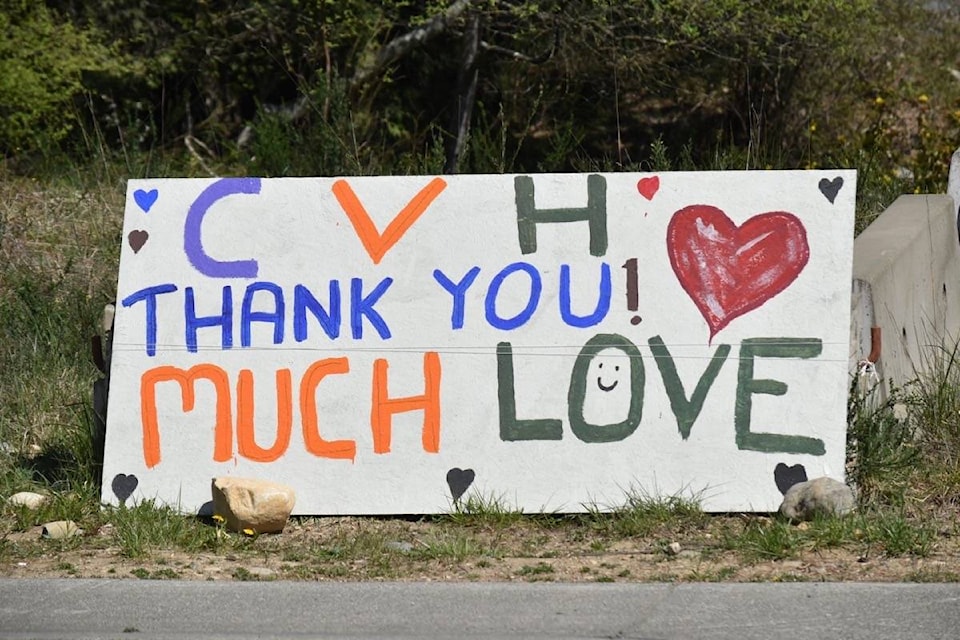 CVH
THANK YOU!
MUCH LOVE